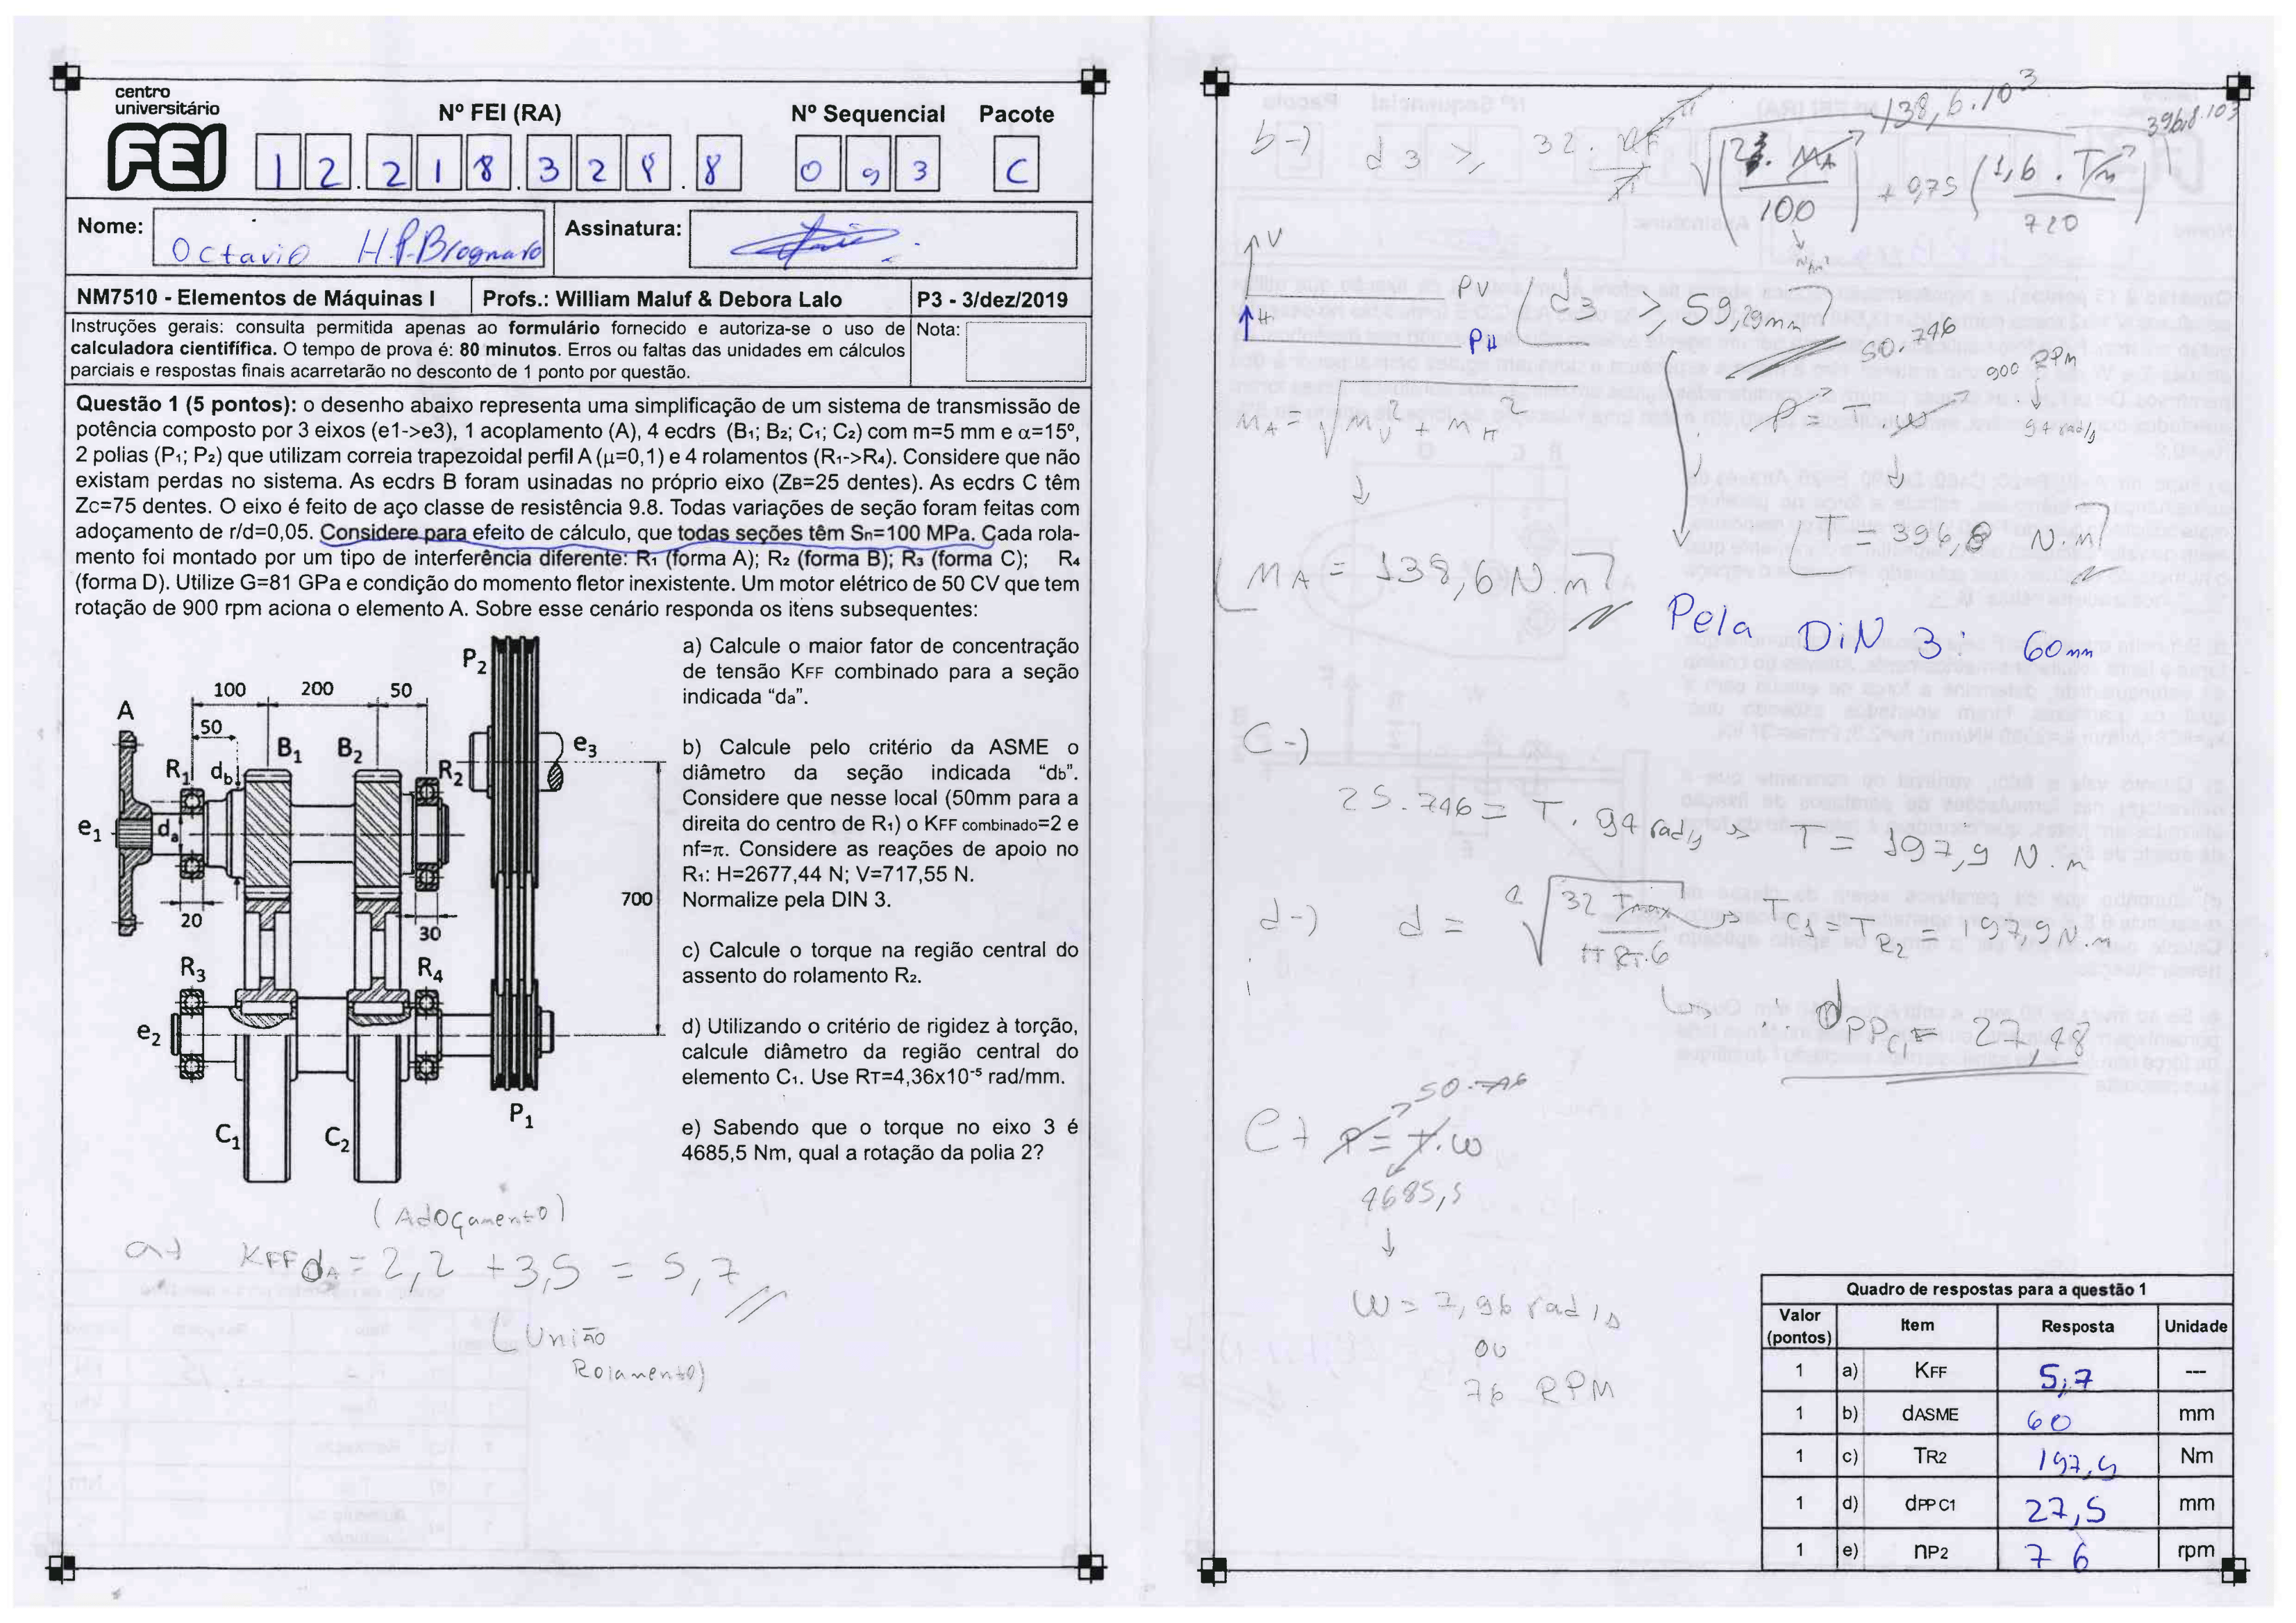 centro
universitário
FEI
Nº FEI (RA)
Nº Sequencial
Pacote
12.218.328.8
093
C
Nome:
Octavio H.P.Brognaro
Assinatura:
NM7510 - Elementos de Máquinas I
Profs.: William Maluf & Debora Lalo
P3 - 3/dez/2019
Instruções gerais: consulta permitida apenas ao formulário fornecido e autoriza-se o uso de
calculadora cientifífica. O tempo de prova é: 80 minutos. Erros ou faltas das unidades em cálculos
parciais e respostas finais acarretarão no desconto de 1 ponto por questão.
Nota:
Questão 1 (5 pontos): o desenho abaixo representa uma simplificação de um sistema de transmissão de
potência composto por 3 eixos (e1->e3), 1 acoplamento (A), 4 ecdrs (B1; B2; C1; C2) com m=5 mm e α=15º,
2 polias (P1; P2) que utilizam correia trapezoidal perfil A (μ=0,1) e 4 rolamentos (R1->R4). Considere que não
existam perdas no sistema. As ecdrs B foram usinadas no próprio eixo (ZB=25 dentes). As ecdrs C têm
Zc=75 dentes. O eixo é feito de aço classe de resistência 9.8. Todas variações de seção foram feitas com
adoçamento de r/d=0,05. Considere para efeito de cálculo, que todas seções têm Sn=100 MPa. Cada rola-
mento foi montado por um tipo de interferência diferente: R1 (forma A); R2 (forma B); R3 (forma C); R4
(forma D). Utilize G=81 GPa e condição do momento fletor inexistente. Um motor elétrico de 50 CV que tem
rotação de 900 rpm aciona o elemento A. Sobre esse cenário responda os itens subsequentes:
P2
100 200 50
A
50
B1 B2
R1 db
R2
e3
e1
da
20
30
700
R3
R4
e2
P1
C1
C2
a) Calcule o maior fator de concentração
de tensão KFF combinado para a seção
indicada “da”.
b) Calcule pelo critério da ASME o
diâmetro da seção indicada “db”.
Considere que nesse local (50mm para a
direita do centro de R1) o KFF combinado=2 e
nf=π. Considere as reações de apoio no
R1: H=2677,44 N; V=717,55 N.
Normalize pela DIN 3.
c) Calcule o torque na região central do
assento do rolamento R2.
d) Utilizando o critério de rigidez à torção,
calcule diâmetro da região central do
elemento C1. Use RT=4,36x10-5 rad/mm.
e) Sabendo que o torque no eixo 3 é
4685,5 Nm, qual a rotação da polia 2?
(Adoçamento)
a) KFF dA = 2,2 + 3,5 = 5,7
(União
Rolamento)
138,6.10³
396,8.10³
b-) d3 >, 32.
2. MA
100
+ 0,75
1,6 . Tm
720
V
H
PV
PH
d3 >, 59,29mm
50.746
900 RPM
P = T. w
94 rad/s
MA = √ MV² + MH²
T = 396,8 N.m
MA = 138,6 N.m
Pela DiN 3: 60mm
C-)
25.746 = T. 94 rad/s → T = 197,9 N.m
d-) d = 4√ 32 Tmax
π RT.G
→ TC1 = TR2 = 197,9 N.m
∴ dPPC1 = 27,48
50.746
e) P = T.w
4685,5
W = 7,96 rad/s
ou
76 RPM
Quadro de respostas para a questão 1
Valor
(pontos)
Item
Resposta
Unidade
1 a) KFF 5,7 ---
1 b) dASME 60 mm
1 c) TR2 197,9 Nm
1 d) dPP C1 27,5 mm
1 e) nP2 76 rpm